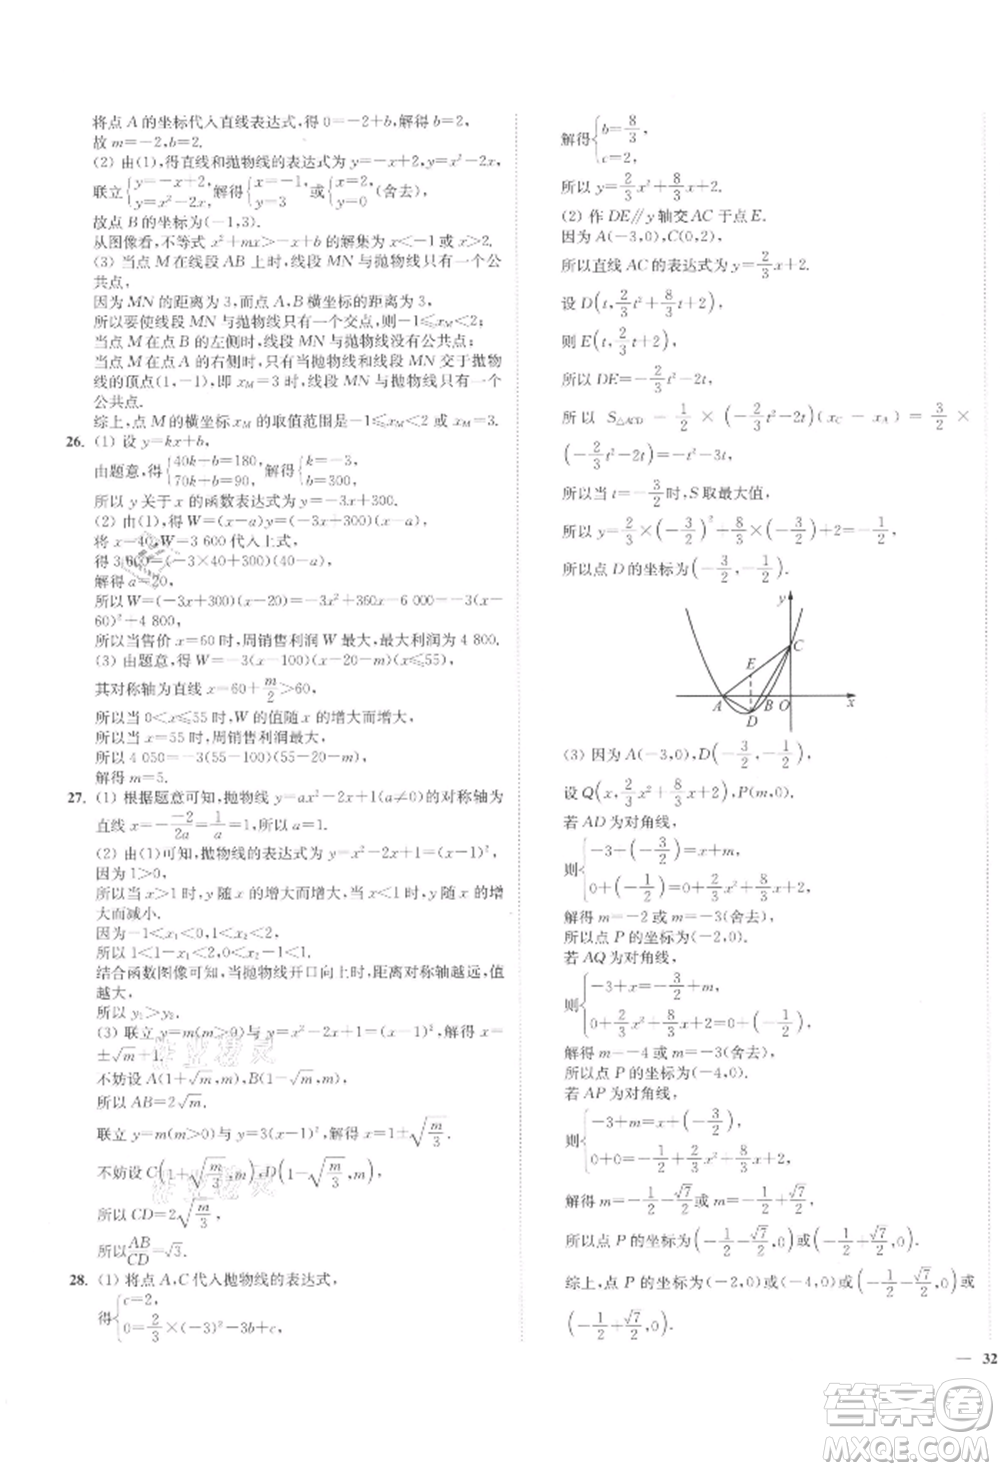 将点 A 的坐标代入直线表达式,得 0=-2+b,解得 b=2,
故 m=-2,b=2.
(2) 由(1),得直线和抛物线的表达式为 y=-x+2,y=x²-2x,
联立{y=-x+2, y=x²-2x, 解得{x=-1, y=3 或{x=2, y=0 (舍去),
故点 B 的坐标为(-1,3).
从图像看,不等式 x²+mx>-x+b 的解集为 x<-1 或 x>2.
(3) 当点 M 在线段 AB 上时,线段 MN 与抛物线只有一个公
共点,
因为 MN 的距离为 3,而点 A,B 横坐标的距离为 3,
所以要使线段 MN 与抛物线只有一个交点,则-1≤xM<2;
当点 M 在点 B 的左侧时,线段 MN 与抛物线没有公共点;
当点 M 在点 A 的右侧时,只有当抛物线 MN 交于抛物
线的顶点(1,-1),即 xM=3 时,线段 MN 与抛物线只有一个
公共点.
综上,点 M 的横坐标 xM 的取值范围是-1≤xM<2 或 xM=3.
26. (1) 设 y=kx+b,
由题意,得{40k+b=180, 70k+b=90, 解得{k=-3, b=300,
所以 y 关于 x 的函数表达式为 y=-3x+300.
(2) 由(1),得 W=(x-a)y=(-3x+300)(x-a),
将 x=40,W=3 600代入上式,
得 3 600=(-3×40+300)(40-a),
解得 a=20,
所以 W=(-3x+300)(x-20)=-3x²+360x-6 000=-3(x-
60)²+4 800,
所以当售价 x=60 时,周销售利润 W 最大,最大利润为 4 800.
(3) 由题意,得 W=-3(x-100)(x-20-m)(x≤55),
其对称轴为直线 x=60+m/2>60,
所以当 0<x≤55 时,W 的值随 x 的增大而增大,
所以当 x=55 时,周销售利润最大,
所以 4 050=-3(55-100)(55-20-m),
解得 m=5.
27. (1) 根据题意可知,抛物线 y=ax²-2x+1(a≠0)的对称轴为
直线 x=-(-2)/2a=1/a=1,所以 a=1.
(2) 由(1)可知,抛物线的表达式为 y=x²-2x+1=(x-1)²,
因为 1>0,
所以当 x>1 时,y 随 x 的增大而增大,当 x<1 时,y 随 x 的增
大而减小.
因为-1<x₁<0,1<x₂<2,
所以 1<1-x₁<2,0<x₂-1<1,
结合函数图像可知,当抛物线开口向上时,距离对称轴越远,值
越大,
所以 y₁>y₂.
(3) 联立 y=m(m>0)与 y=x²-2x+1=(x-1)²,解得 x=1
±√m,
不妨设 A(1+√m,m),B(1-√m,m),
所以 AB=2√m.
联立 y=m(m>0)与 y=3(x-1)²,解得 x=1±√(m/3).
不妨设 C(1+√(m/3),m),D(1-√(m/3),m),
所以 CD=2√(m/3),
所以 AB/CD=√3.
28. (1) 将点 A,C 代入抛物线的表达式,
得{c=2, 0=2/3×(-3)²-3b+c,
解得{b=8/3, c=2,
所以 y=2/3x²+8/3x+2.
(2) 作 DE∥y 轴交 AC 于点 E.
因为 A(-3,0),C(0,2),
所以直线 AC 的表达式为 y=2/3x+2.
设 D(t,2/3t²+8/3t+2),
则 E(t,2/3t+2),
所以 DE=-2/3t²-2t,
所以 S△ACD=1/2×(-2/3t²-2t)(xC-xA)=3/2×
(-2/3t²-2t)=-t²-3t,
所以当 t=-3/2时,S 取最大值,
所以 y=2/3×(-3/2)²+8/3×(-3/2)+2=-1/2,
所以点 D 的坐标为(-3/2,-1/2).
y
C
E
A
B
O
x
D
(3) 因为 A(-3,0),D(-3/2,-1/2),
设 Q(x,2/3x²+8/3x+2),P(m,0).
若 AD 为对角线,
则{-3-(-3/2)=x+m, 0+(-1/2)=0+2/3x²+8/3x+2,
解得 m=-2 或 m=-3(舍去),
所以点 P 的坐标为(-2,0).
若 AQ 为对角线,
则{-3+x=-3/2+m, 0+2/3x²+8/3x+2=0+(-1/2),
解得 m=-4 或 m=-3(舍去),
所以点 P 的坐标为(-4,0).
若 AP 为对角线,
则{-3+m=x+(-3/2), 0+0=-1/2+2/3x²+8/3x+2,
解得 m=-1/2-√7/2或 m=-1/2+√7/2,
所以点 P 的坐标为(-1/2-√7/2,0)或(-1/2+√7/2,0).
综上,点 P 的坐标为(-2,0)或(-4,0)或(-1/2-√7/2,0)或
(-1/2+√7/2,0).
— 32
答案卷
MXQE.COM